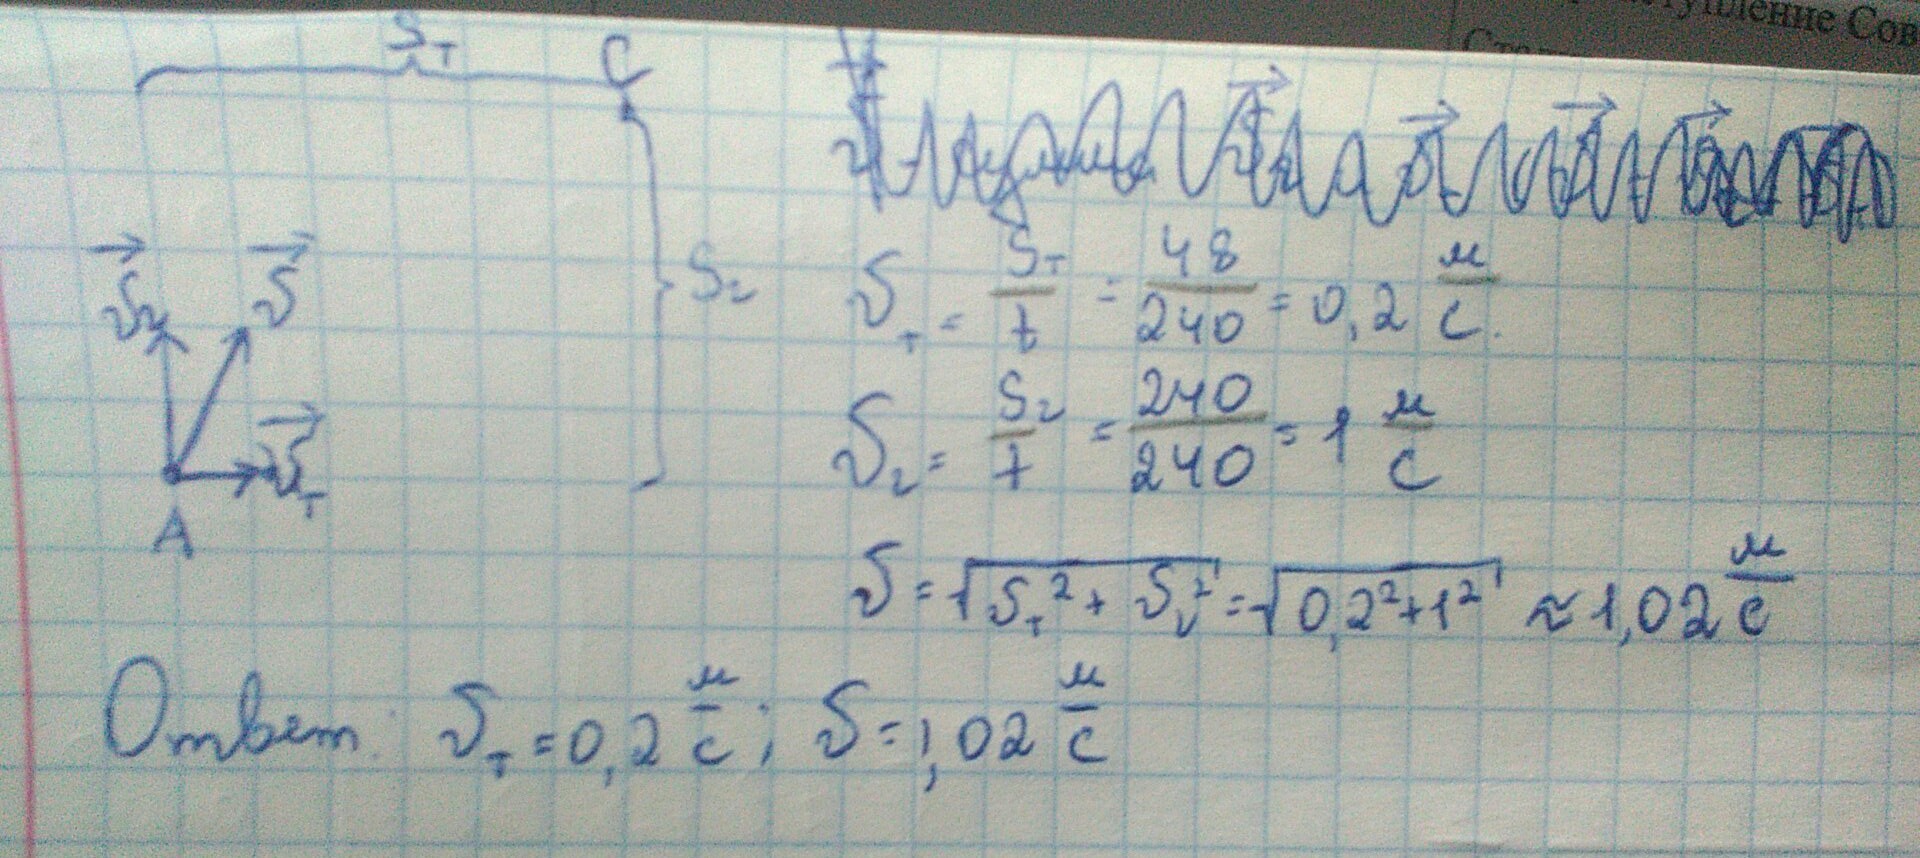 ступление Сов
S_т
C
S_г
A
v⃗_г
v⃗
v⃗_т
v_т = S_т/t = 48/240 = 0,2 м/с.
v_г = S_г/t = 240/240 = 1 м/с
v = √(v_т² + v_г²) = √(0,2² + 1²) ≈ 1,02 м/с
Ответ: v_т = 0,2 м/с; v = 1,02 м/с